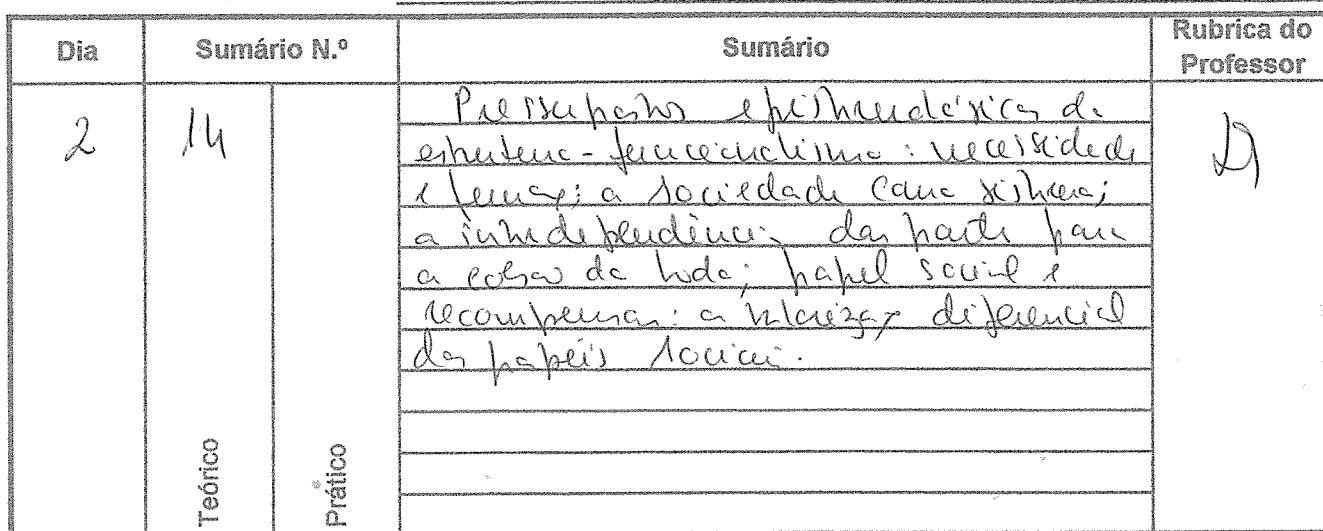 Dia
Sumário N.º
Sumário
Rubrica do
Professor
2
14
Pressupostos epistemológicos do
estruturo-funcionalismo: necessidade
e função; a sociedade como sistema;
a interdependência das partes para
a coesão do todo; papel social e
recompensas: a valorização diferencial
dos papéis sociais.
Teórico
Prático